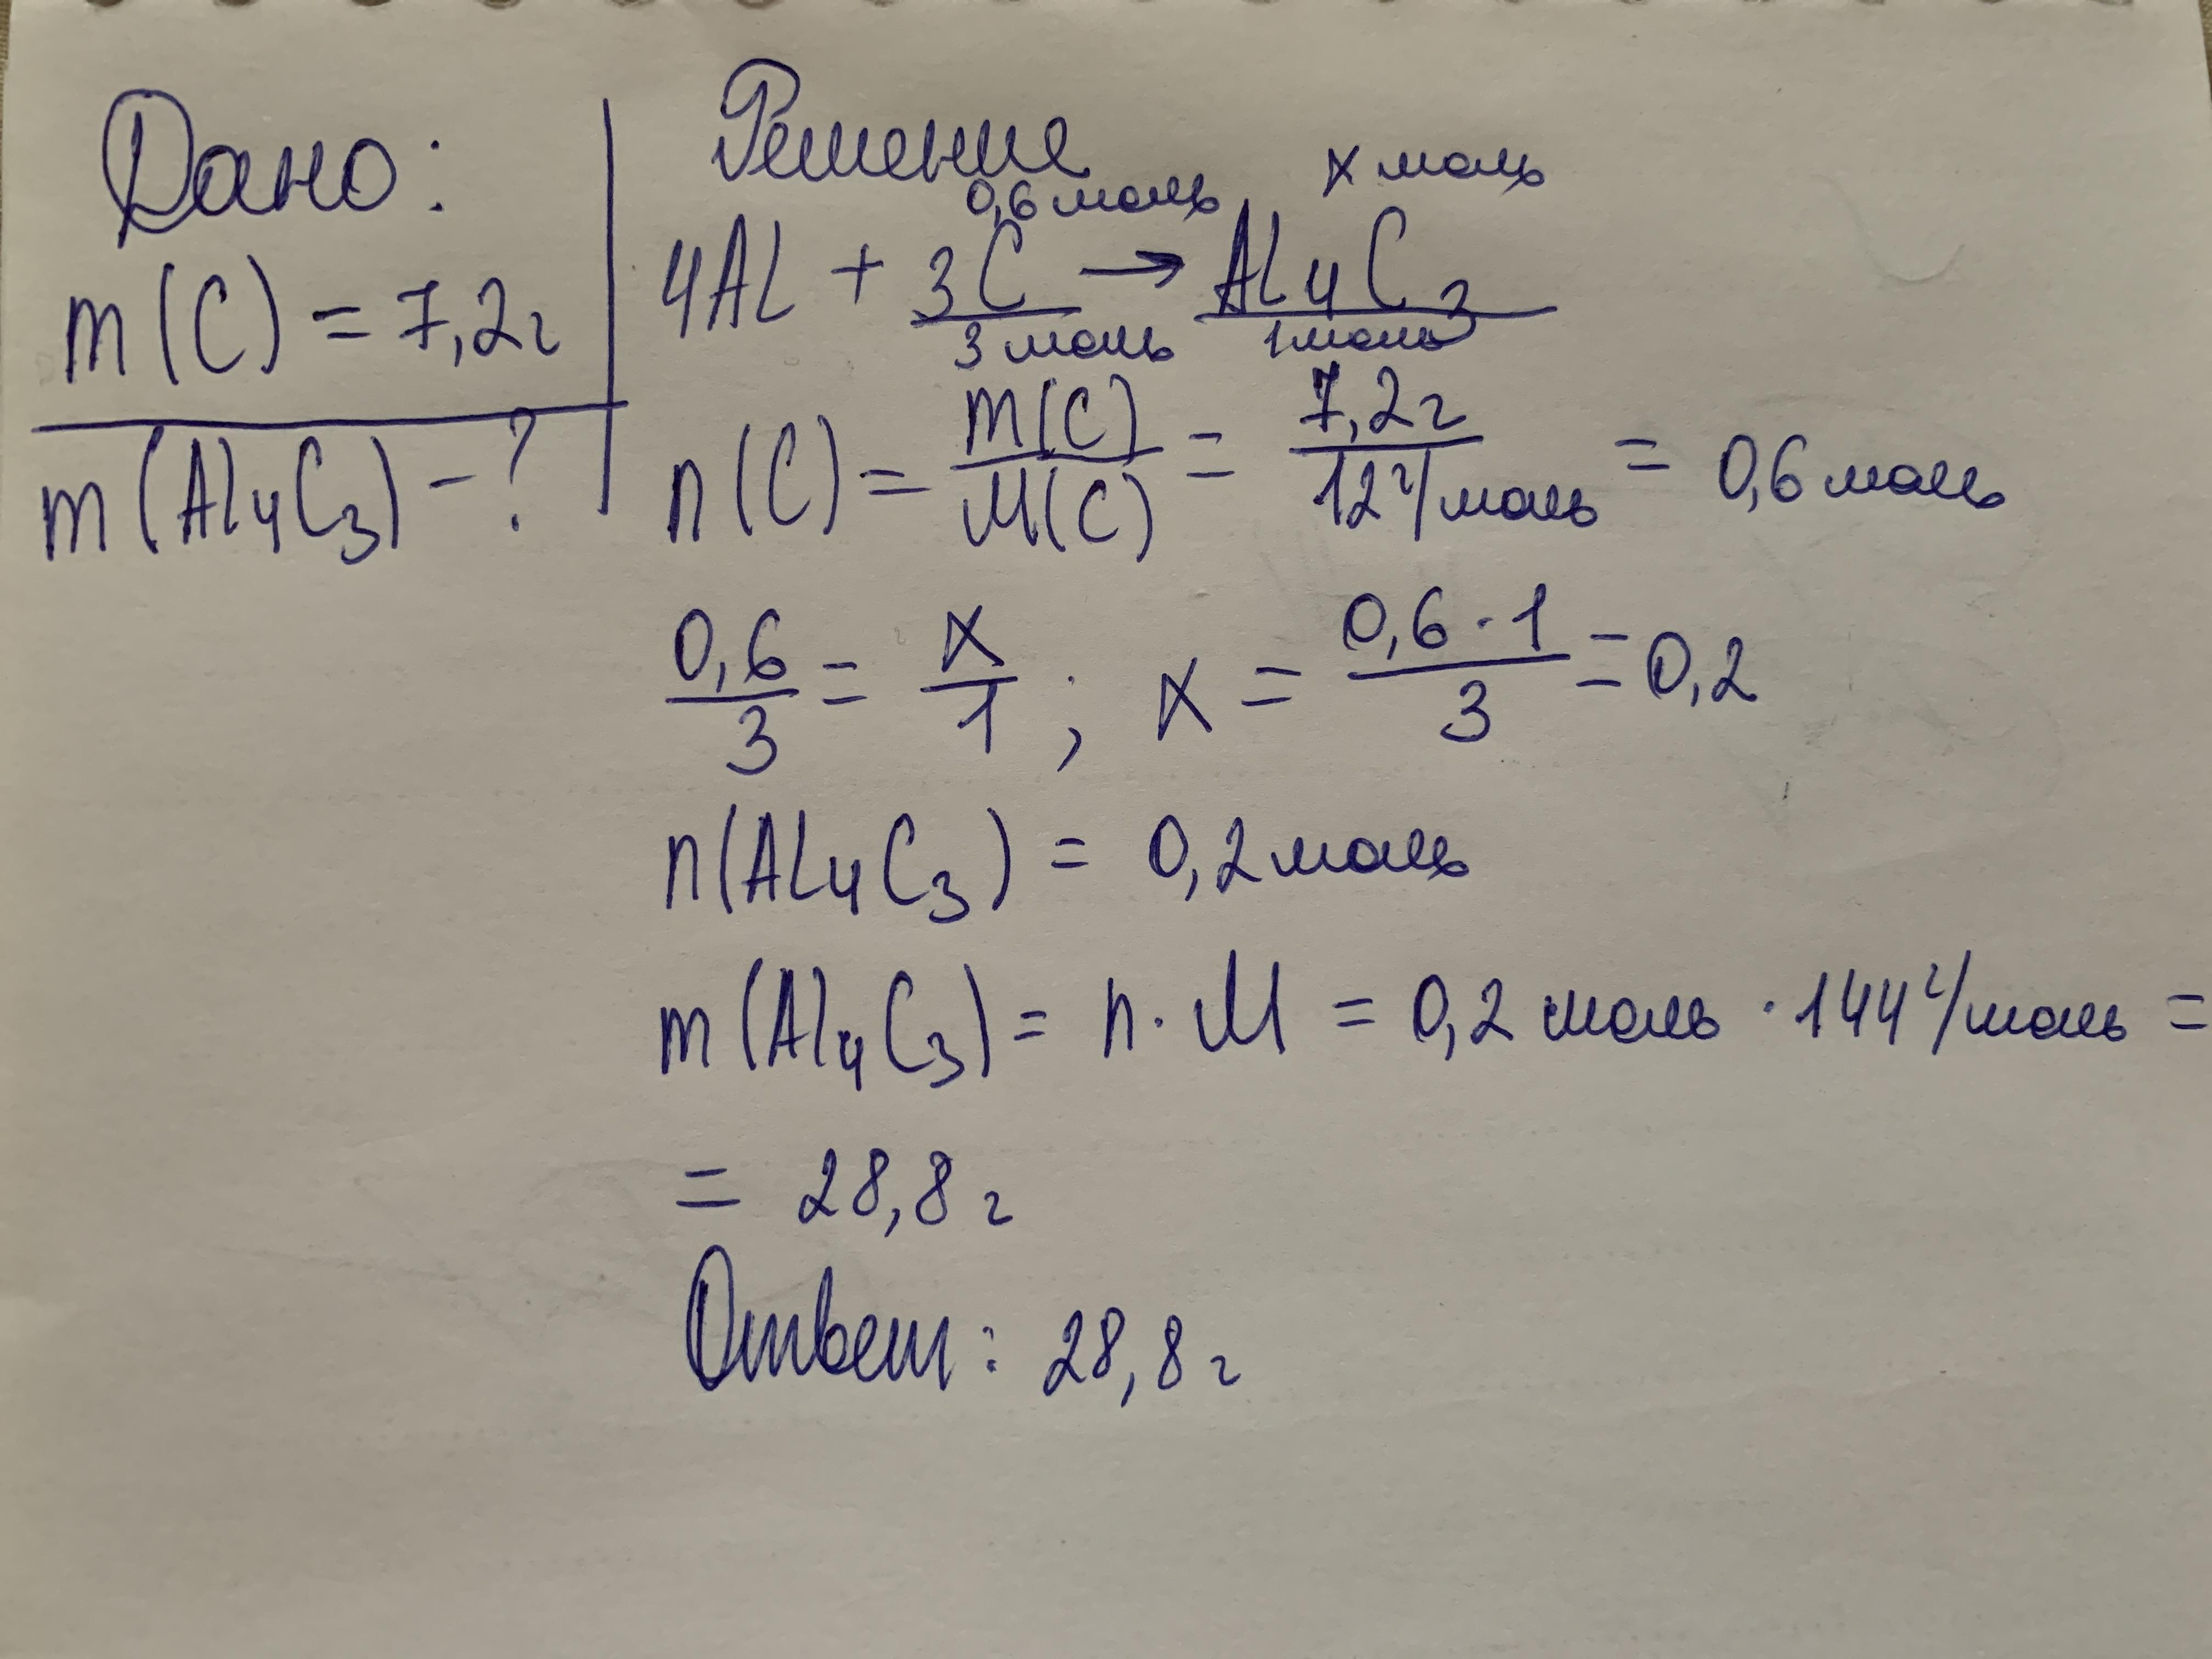 Дано:
m(C) = 7,2г
m(Al₄C₃) - ?
Решение
0,6 моль x моль
4Al + 3C → Al₄C₃
3 моль 1 моль
n(C) = m(C)/M(C) = 7,2г/12 г/моль = 0,6 моль
0,6/3 = x/1 ; x = 0,6·1/3 = 0,2
n(Al₄C₃) = 0,2 моль
m(Al₄C₃) = n·M = 0,2 моль · 144 г/моль =
= 28,8 г
Ответ: 28,8 г